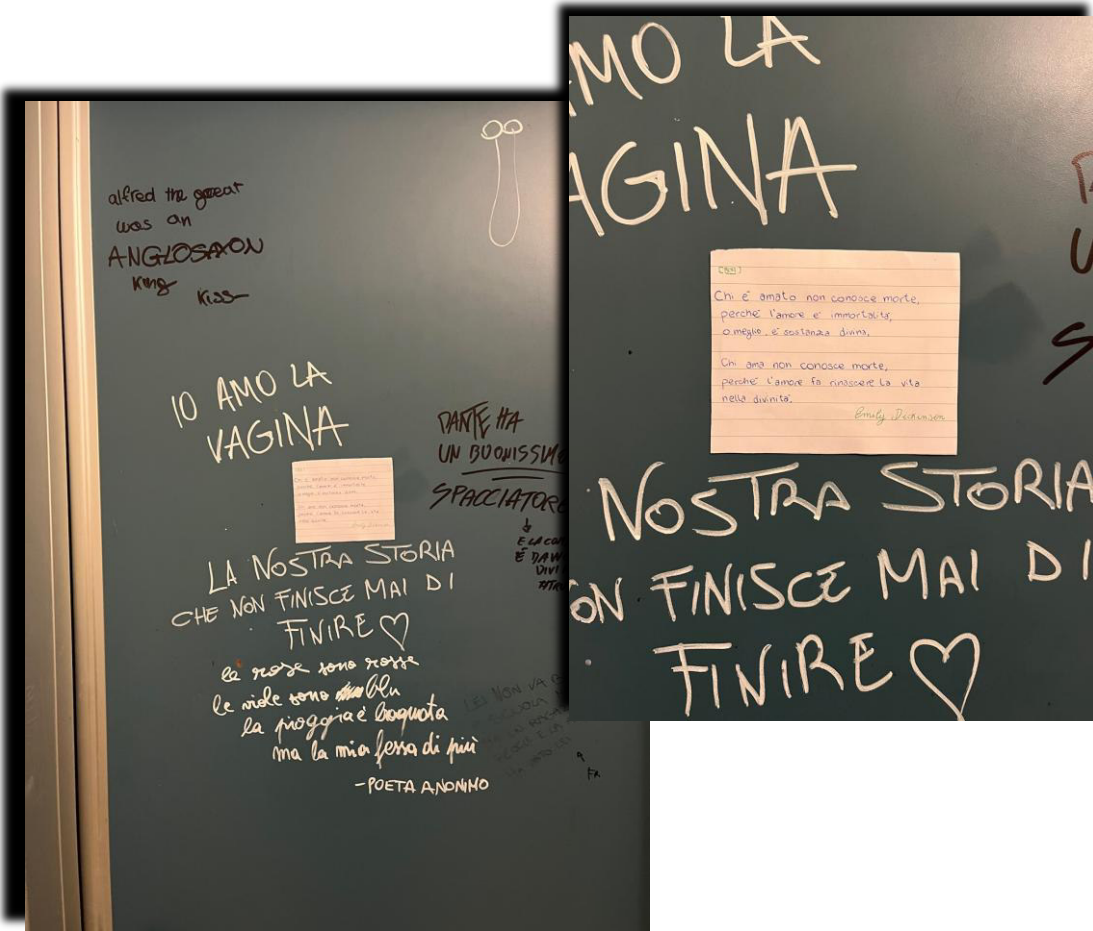 alfred the great
was an
ANGLOSAXON
king
kiss
IO AMO LA
VAGINA
DANTE HA
UN BUONISSIMO
SPACCIATORE
E LA
È
LA NOSTRA STORIA
CHE NON FINISCE MAI DI
FINIRE
le rose sono rosse
le viole sono blu
la pioggia è bagnata
ma la mia fessa di più
-POETA ANONIMO
LEI NON VA
MO LA
AGINA
Chi è amato non conosce morte,
perché l'amore è immortalità,
o meglio, è sostanza divina.
Chi ama non conosce morte,
perché l'amore fa rinascere la vita
nella divinità.
Emily Dickinson
NOSTRA STORIA
ON FINISCE MAI DI
FINIRE